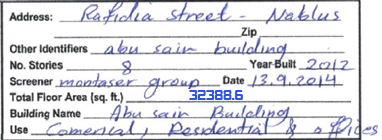 Address: Rafidia street - Nablus
Zip
Other Identifiers abu sair building
No. Stories 8 Year Built 2012
Screener montaser group Date 13.9.2014
Total Floor Area (sq. ft.) 32388.6
Building Name Abu sair Building
Use Comercial, Residential & offices